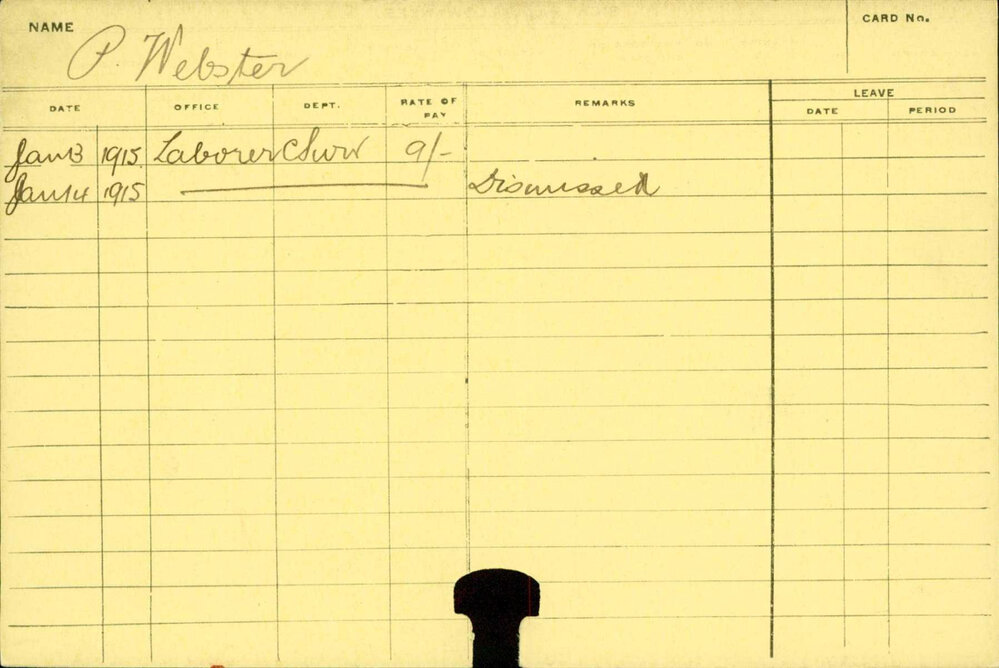 NAME
P. Webster
CARD No.
DATE OFFICE DEPT. RATE OF PAY REMARKS LEAVE
DATE PERIOD
Jan 13 1915 Laborer 9/-
Jan 14 1915 Dismissed